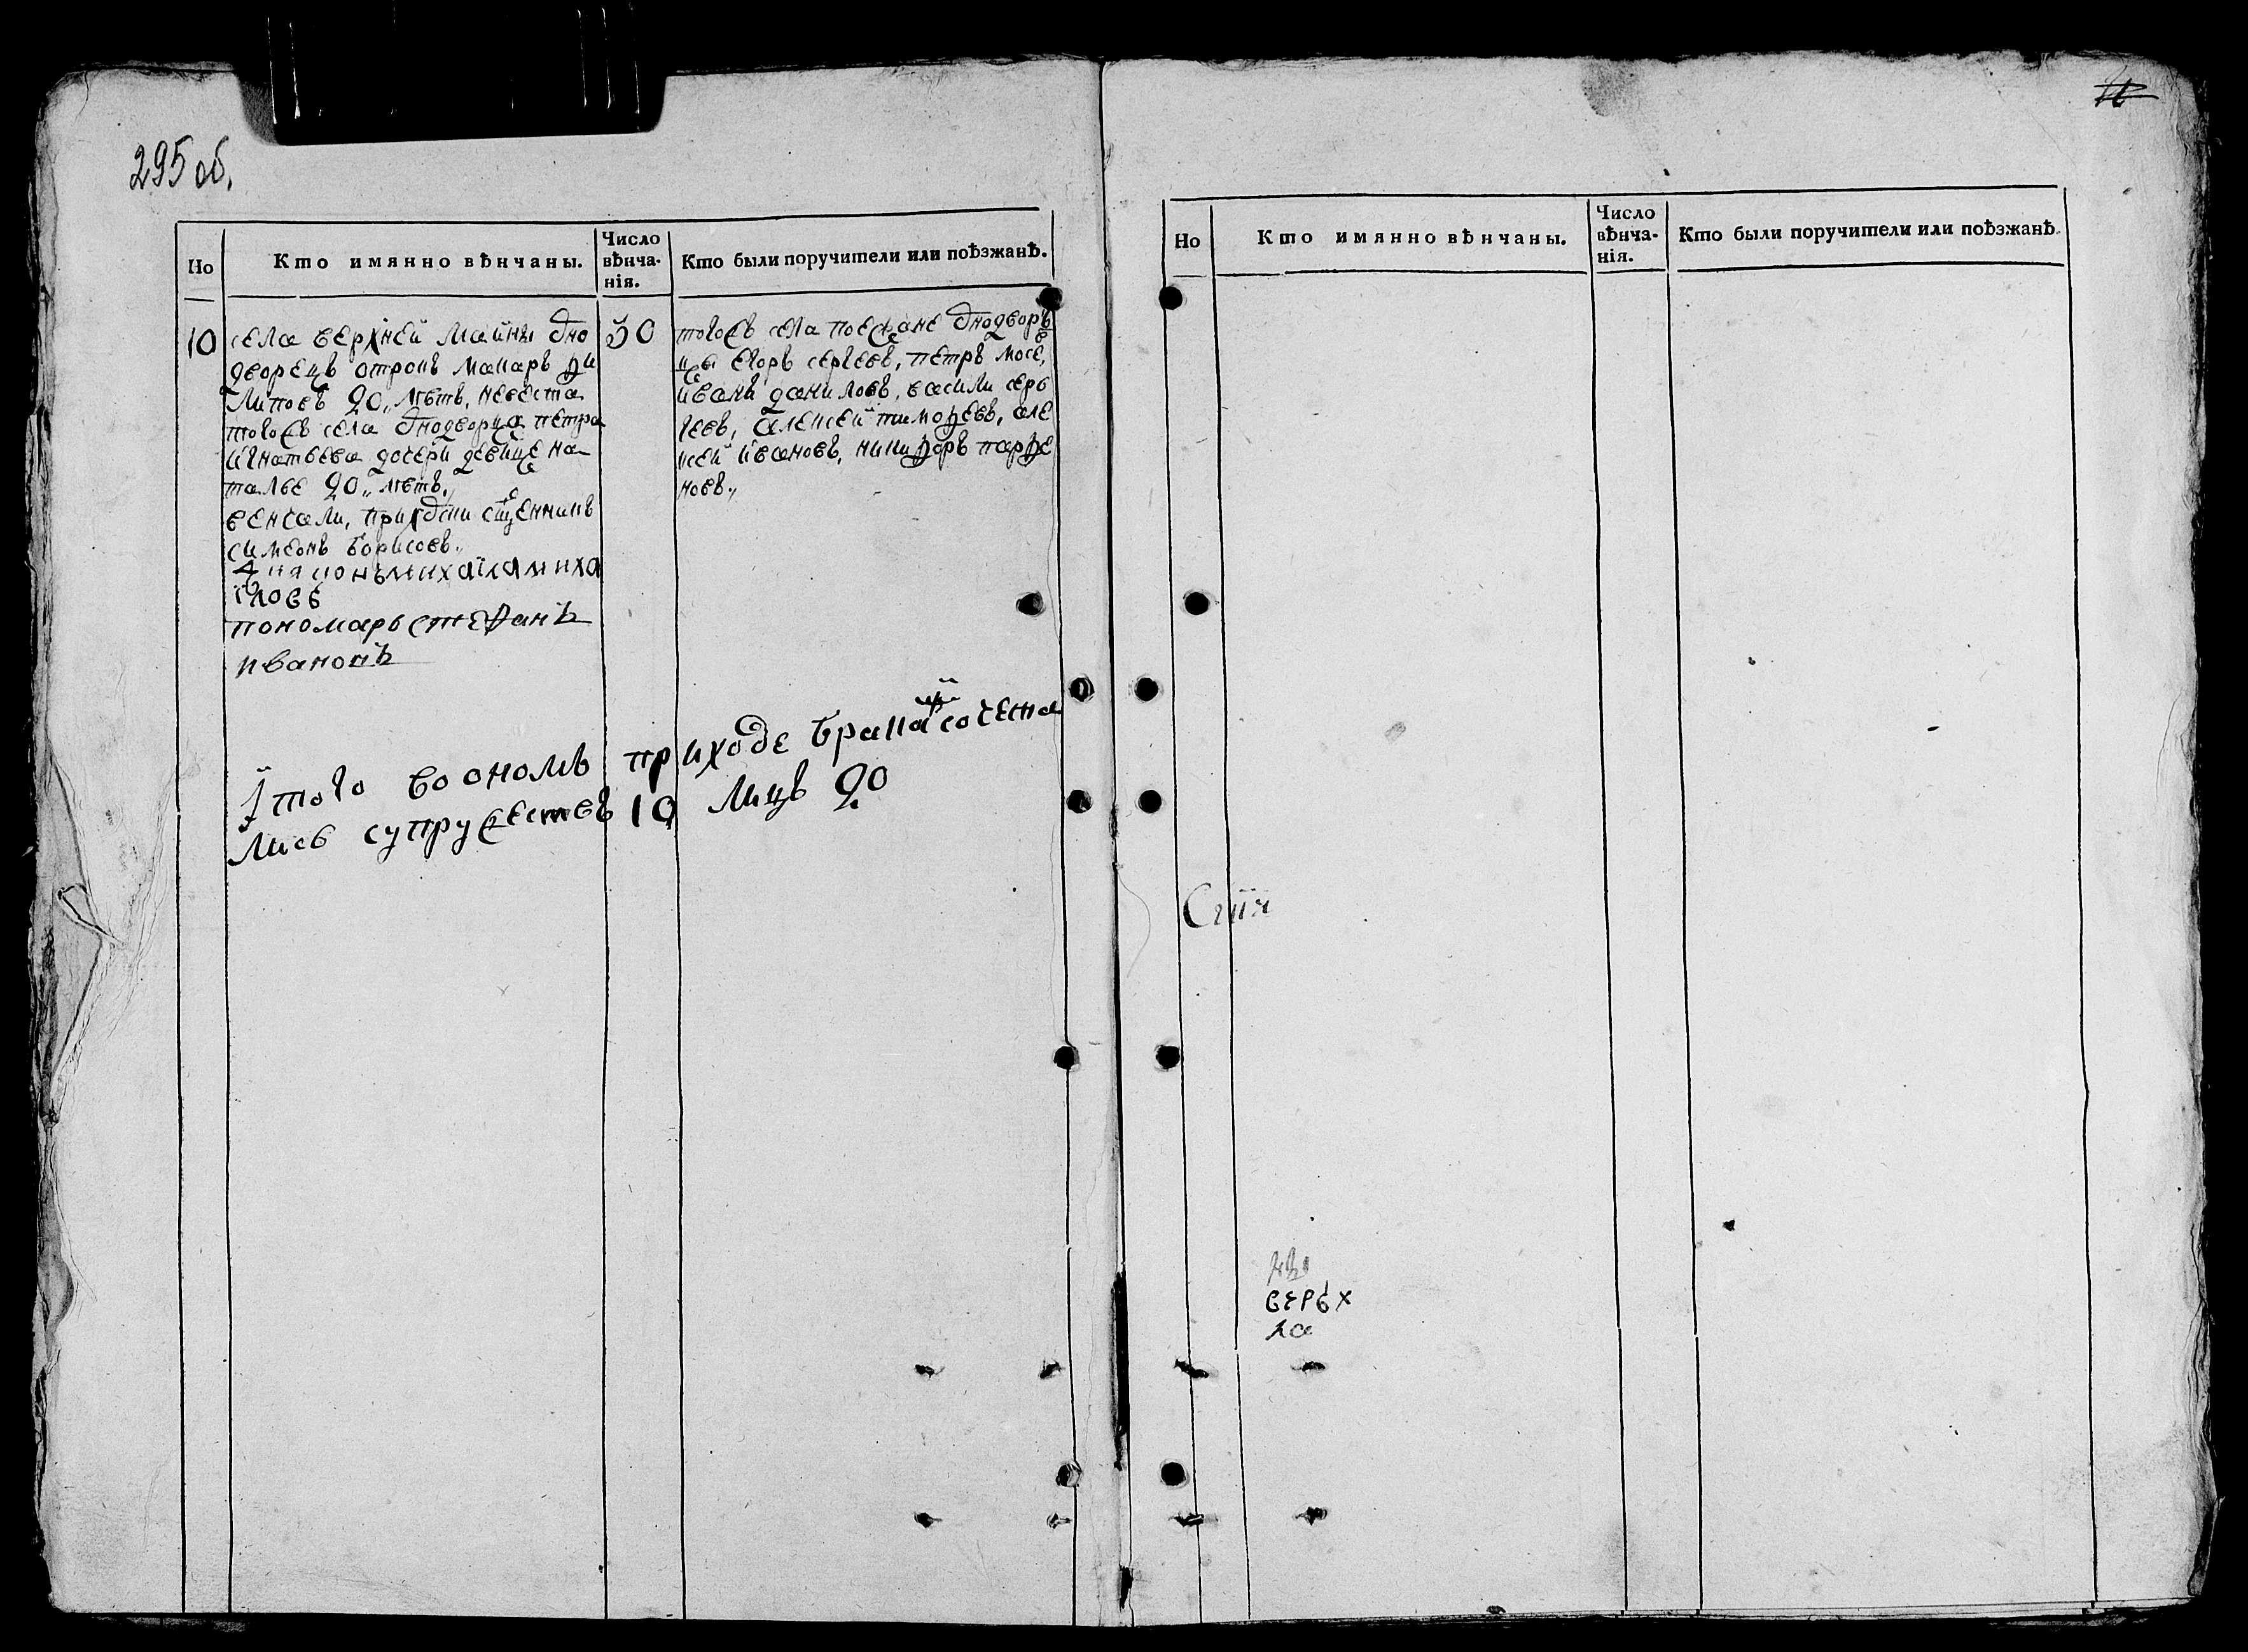 295 об.
Но
Кто имянно вѣнчаны.
Число вѣнча-нія.
Кто были поручители или поѣзжанѣ.
10
села верхней майны одно
дворецъ отрокъ макаръ фи
липовъ 20,, лѣтъ, невеста
тогожъ села однодворца петра
игнатьева дочери девице на
талье 20,, лѣтъ,,
венчали, приходски сщенникъ
симеонъ борисовъ,,
диаконъ михаила миха
iловъ
пономарь стефанъ
ивановъ
30
тогожъ села поезжане однодворъ
цы егоръ сергеевъ, петръ мосе,
иванъ даниловъ, васили серъ
геевъ, алексей тимофеевъ, але
ксей ивановъ, никифоръ парфе
новъ,,
Iтого во ономъ приходе брака сочета
лись супружествъ 10 лицъ 20
Но
Кто имянно вѣнчаны.
Число вѣнча-нія.
Кто были поручители или поѣзжанѣ.
верьх